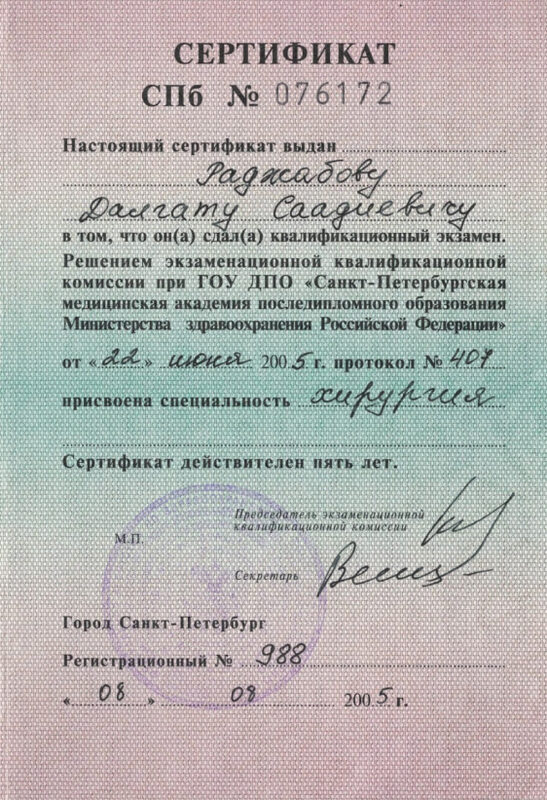 СЕРТИФИКАТ
СПб № 076172
Настоящий сертификат выдан
Раджабову
Далгату Саадиевичу
в том, что он(а) сдал(а) квалификационный экзамен.
Решением экзаменационной квалификационной
комиссии при ГОУ ДПО «Санкт-Петербургская
медицинская академия последипломного образования
Министерства здравоохранения Российской Федерации»
от «22» июня 2005 г. протокол № 407
присвоена специальность хирургия
Сертификат действителен пять лет.
Председатель экзаменационной
квалификационной комиссии
М.П.
Секретарь
Город Санкт-Петербург
Регистрационный № 988
« 08 » 08 2005 г.